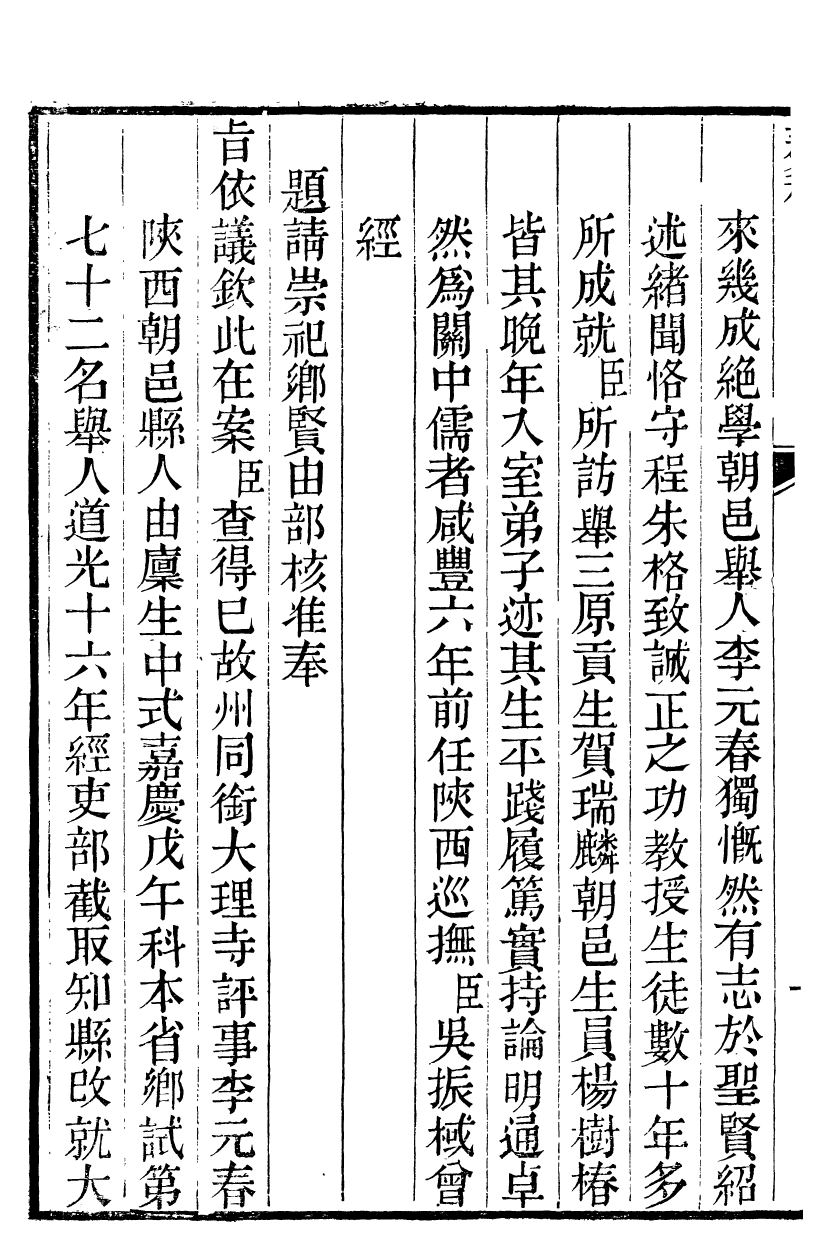 來幾成絕學朝邑舉人李元春獨慨然有志於聖賢紹
述緒聞恪守程朱格致誠正之功教授生徒數十年多
所成就臣所訪舉三原貢生賀瑞麟朝邑生員楊樹椿
皆其晚年入室弟子迹其生平踐履篤實持論明通卓
然爲關中儒者咸豐六年前任陝西巡撫臣吳振棫曾
經
題請崇祀鄉賢由部核准奉
旨依議欽此在案臣查得已故州同銜大理寺評事李元春
陝西朝邑縣人由廩生中式嘉慶戊午科本省鄉試第
七十二名舉人道光十六年經吏部截取知縣改就大